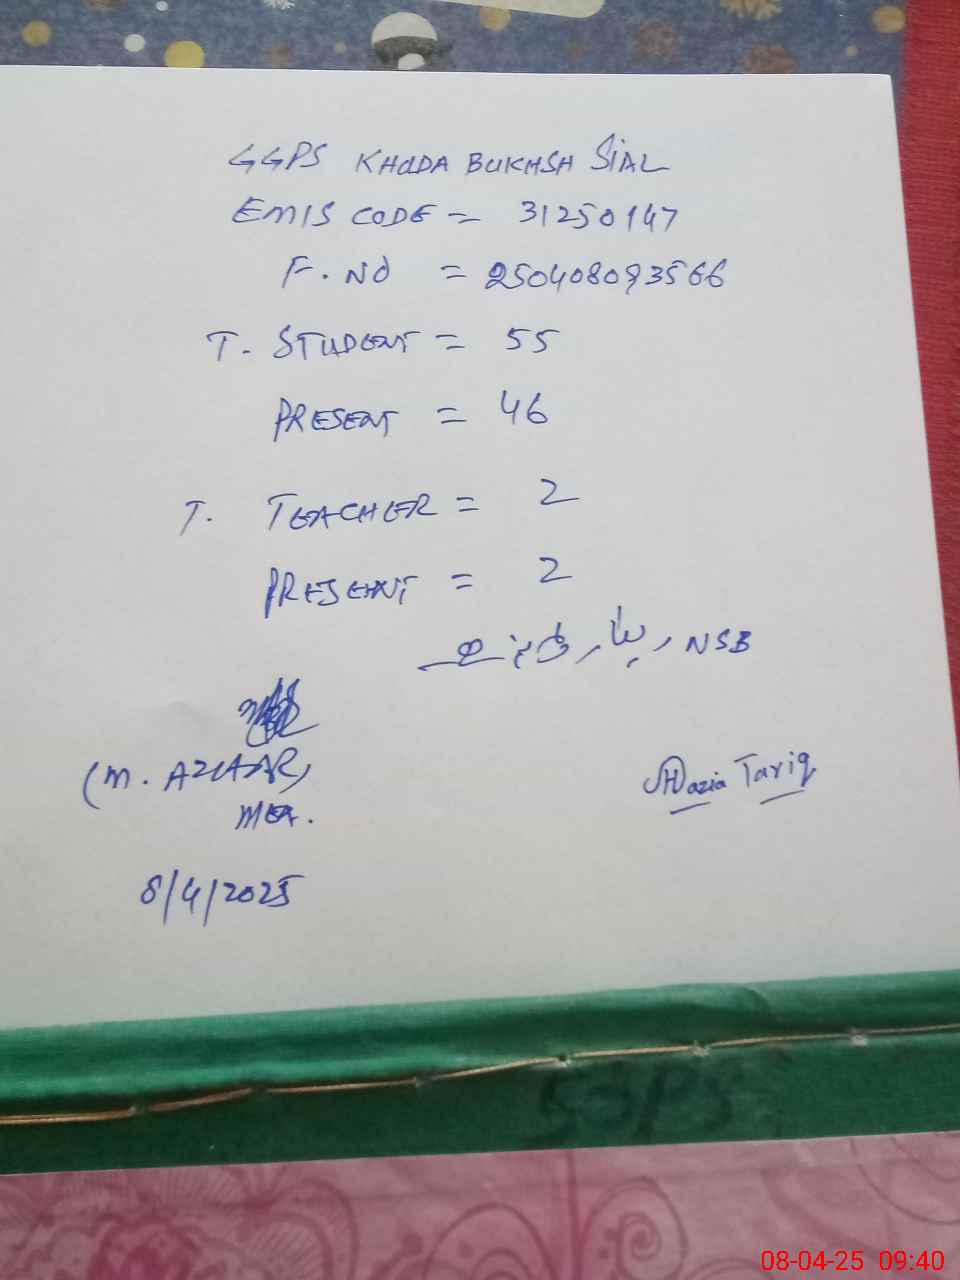 GGPS KHUDA BUKHSH SIAL
EMIS CODE = 31250147
F. NO = 250408093566
T. STUDENT = 55
PRESENT = 46
T. TEACHER = 2
PRESENT = 2
NSB ریکارڈ
(M. AZHAR)
MEA.
Nazia Tariq
8/4/2025
GGPS
08-04-25 09:40